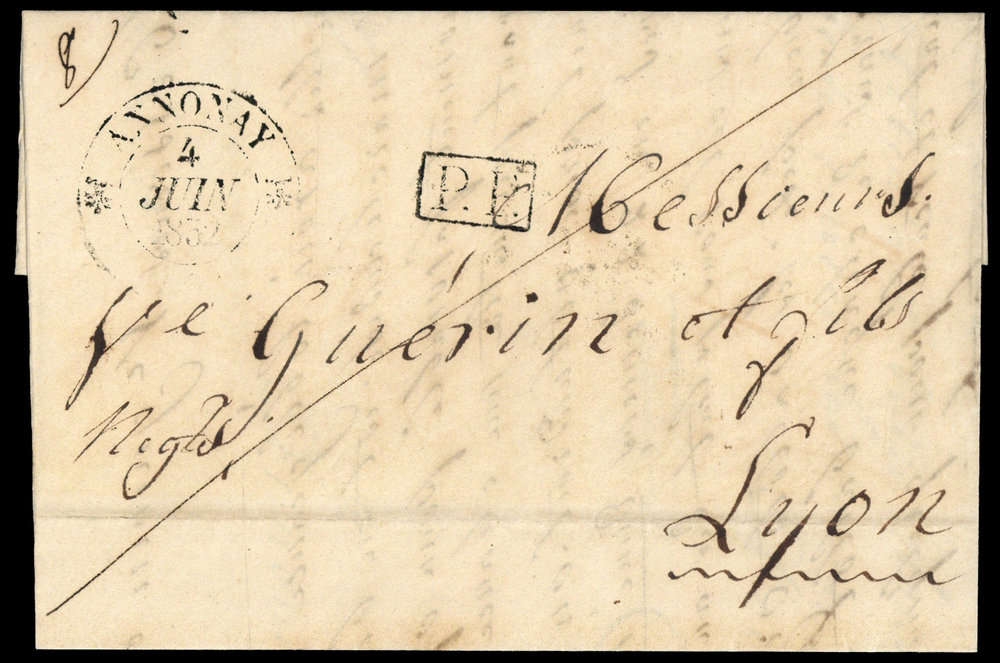 8
ANNONAY
4
JUIN
1832
P.P.
Messieurs
Ve Guérin et fils
Negts
Lyon